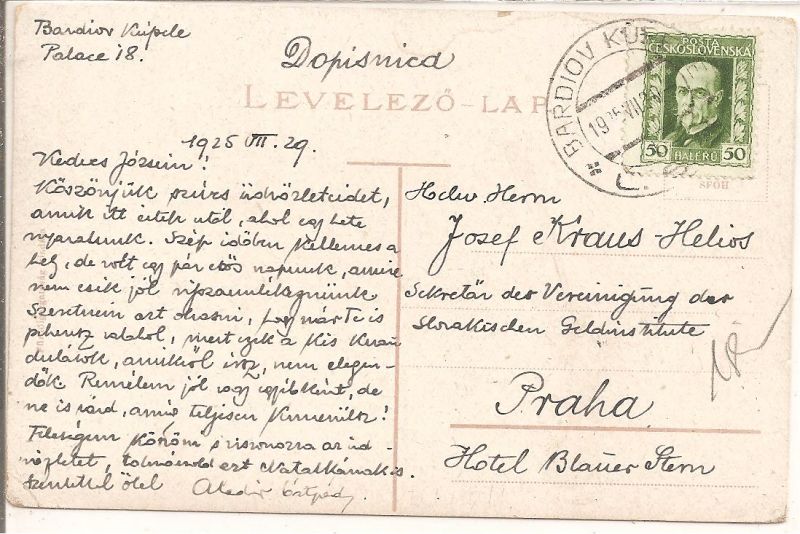 Bardiov Kúpele
Palace 18.
Dopisnica
LEVELEZŐ-LAP
BARDIOV KÚP
19 VII
POŠTA
ČESKOSLOVENSKÁ
50 HALÉŘŮ 50
1925 VII. 29.
Kedves Józsein!
Köszönjük szíves üdvözleteidet,
amik itt értek utól, ahol egy hete
nyaralunk. Szép időben kellemes a
hely, de volt egy pár esős napunk, amire
nem esik jól visszaemlékeznünk
Szeretném azt olvasni, hogy már Te is
pihensz valahol, mert ezek a kis kirán
dulások, amikről írsz, nem elegen-
dők. Remélem jól vagy egyébként, de
ne is várd, amíg teljesen kimerülsz!
Feleségem köszöni s viszonozza az üd-
vözletet, tolmácsold ezt Natalkának is
szeretettel ölel Aladár
Herrn
Josef Kraus-Helios
Sekretär der Vereinigung der
Slovakischen Geldinstitute
Praha
Hotel Blauer Stern